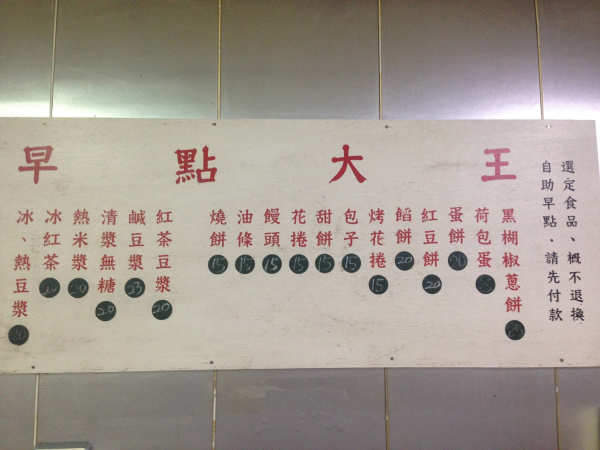 早點大王
選定食品、概不退換
自助早點．請先付款
黑糊椒蔥餅 25
荷包蛋
蛋餅 20
紅豆餅 20
餡餅 20
烤花捲 15
包子 15
甜餅 15
花捲 15
饅頭 15
油條 15
燒餅 15
紅茶豆漿 20
鹹豆漿 23
清漿無糖 20
熱米漿 20
冰紅茶 20
冰、熱豆漿